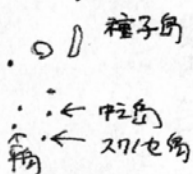 種子島
← 中之島
← スワノセ島
平島